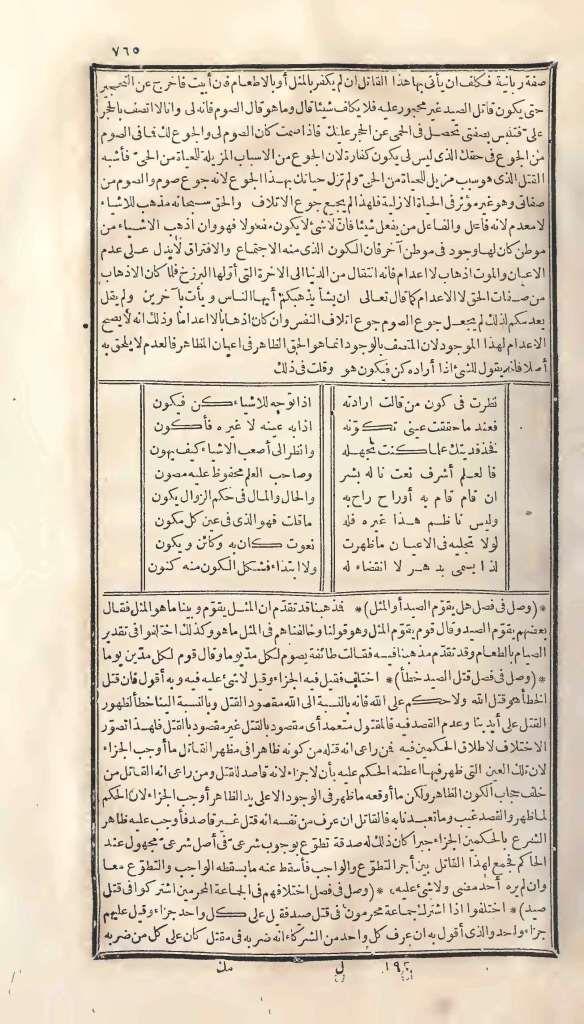 ٧٦٥
صفة ربانية فكلف ان يأتى بها هذا القاتل ان لم يكفر بالمثل أو بالاطعام فان أبيت فاخرج عن التحجير
حتى يكون قاتل الصيد غير محجور عليه فلا يكلف شيئا قال وما هو قال الصوم فانه لى وانا لا اتصف بالحجر
على فتلبس بصفتى تحصل فى الحمى عن الحجر عليك فاذا صمت كان الصوم لى والجوع لك فما فى الصوم
من الجوع فى حقك الذى ليس لى يكون كفارة لان الجوع من الاسباب المزيلة للحياة من الحى فأشبه
القتل الذى هو سبب مزيل للحياة من الحى ولم تزل حياتك بهذا الجوع لانه جوع صوم والصوم من
صفاتى وهو غير مؤثر فى الحياة الازلية فلهذا لم يجع جوع الاتلاف والحق سبحانه مذهب للاشياء
لا معدم لانه فاعل والفاعل من يفعل شيئا فان لا شئ لا يكون مفعولا فهو وان اذهب الاشياء من
موطن كان لها وجود فى موطن آخر فان الكون الذى منه الاجتماع والافتراق لا يدل على عدم
الاعيان والموت اذهاب لا اعدام فانه انتقال من الدنيا الى الآخرة التى أولها البرزخ فلما كان الاذهاب
من صفات الحق لا الاعدام كما قال تعالى ان يشأ يذهبكم أيها الناس و يأت بآخرين ولم يقل
يعدمكم لذلك لم يجعل جوع الصوم جوع اتلاف النفس وان كان اذهابا لا اعداما وذلك انه لا يصح
الاعدام لهذا الموجود لان المتصف بالوجود انما هو الحق الظاهر فى اعيان المظاهر فالعدم لا يلحق به
أصلا فانه يقول للشئ اذا أراده كن فيكون هو وقلت فى ذلك
نظرت فى كون من قالت ارادته اذا توجه للاشياء كن فيكون
فعند ما حققت عينى تكوّنه اذا به عينه لا غيره فأكون
فخذ فديتك علما كنت تجهله وانظر الى أصعب الاشياء كيف يهون
فالعلم أشرف نعت ناله بشر وصاحب العلم محفوظ عليه مصون
ان قام قام به أوراح راح به والحال والمال فى حكم الزوال يكون
وليس ناظم هذا غيره فله ما قلت فهو الذى فى عين كل مكون
لولا تجليه فى الاعيان ما ظهرت نعوت كان به وكائن ويكون
لذا يسمى بدهر لا انقضاء له ولا ابتداء فشكل الكون منه كنون
* (وصل فى فصل هل يقوّم الصيد أو المثل) * فذهبنا قد تقدّم ان المثل يقوّم وبينا ما هو المثل فقال
بعضهم يقوّم الصيد وقال قوم يقوّم المثل وهو قولنا وخالفناهم فى المثل ما هو وكذلك اختلفوا فى تقدير
الصيام بالطعام وقد تقدّم مذهبنا فيه فقالت طائفة يصوم لكل مدّ يوما وقال قوم لكل مدّين يوما
* (وصل فى فصل قتل الصيد خطأ) * اختلف فقيل فيه الجزاء وقيل لا شئ عليه فيه وبه أقول فان قتل
الخطأ هو قتل الله ولا حكم على الله فانه بالنسبة الى الله مقصود القتل وبالنسبة الينا خطأ لظهور
القتل على أيدينا وعدم القصد فيه فالمقتول متعمد أى مقصود بالقتل غير مقصود بالقتل فلهذا تصوّر
الاختلاف لاطلاق الحكمين فيه فمن راعى انه قتله من كونه ظاهرا فى مظهر القاتل ما أوجب الجزاء
لان تلك العين التى ظهر فيها اعطته الحكم عليه بأن لا جزاء لانه قاصد للقتل ومن راعى انه القاتل من
خلف حجاب الكون الظاهر ولكن ما أوقعه ما ظهر فى الوجود الا على يد الظاهر أوجب الجزاء لان الحكم
لما ظهر والقصد غيب وما تعبدنا به فالقاتل ان عرف من نفسه انه قتل غير قاصد فأوجب عليه ظاهر
الشرع بالحكمين الجزاء جبرا كان ذلك له صدقة تطوّع بوجوب شرعى فى أصل شرعى مجهول عند
الحاكم فجمع لهذا القاتل بين أجر التطوّع والواجب فأسقط عنه ما يسقطه الواجب والتطوّع معا
وان لم يره أحد مضى ولا شئ عليه * (وصل فى فصل اختلافهم فى الجماعة المحرمين اشتركوا فى قتل
صيد) * اختلفوا اذا اشترك جماعة محرمون فى قتل صيد فقيل على كل واحد جزاء وقيل عليهم
جزاء واحد والذى أقول به ان عرف كل واحد من الشركاء انه ضربه فى مقتل كان على كل من ضربه
١٩٢ ل مك